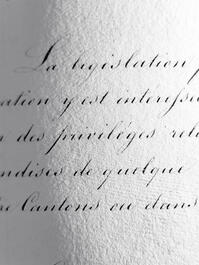 La législation p
ation y est interessé
r des privilèges rela
ndises de quelque
re Cantons ou dans